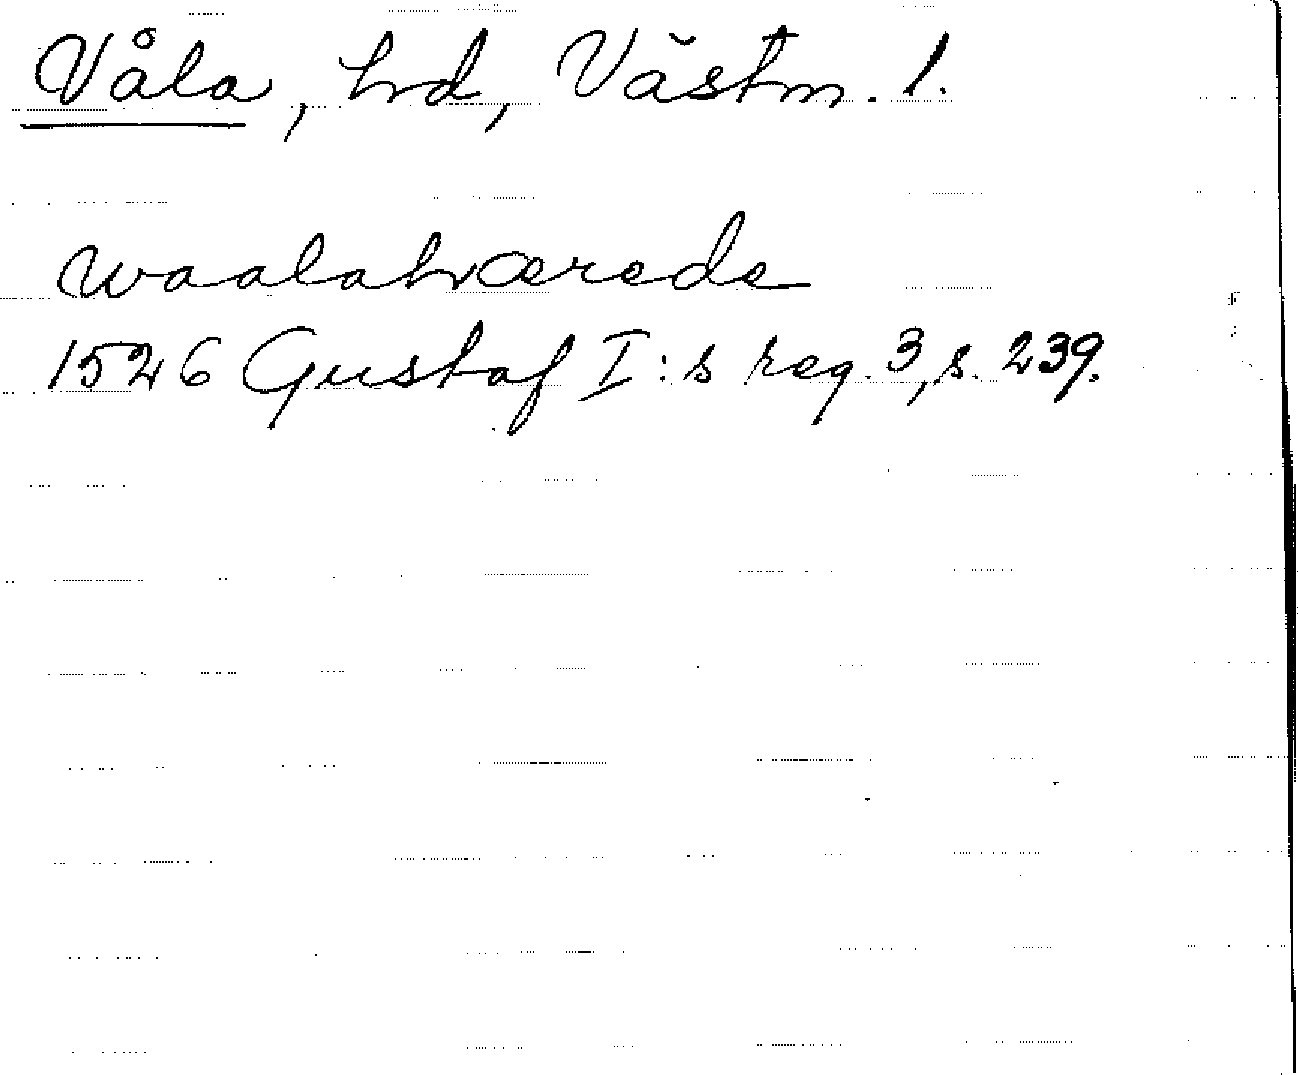 Våla, hd, Västm. l.
waalahærede
1526 Gustaf I:s reg. 3, s. 239.